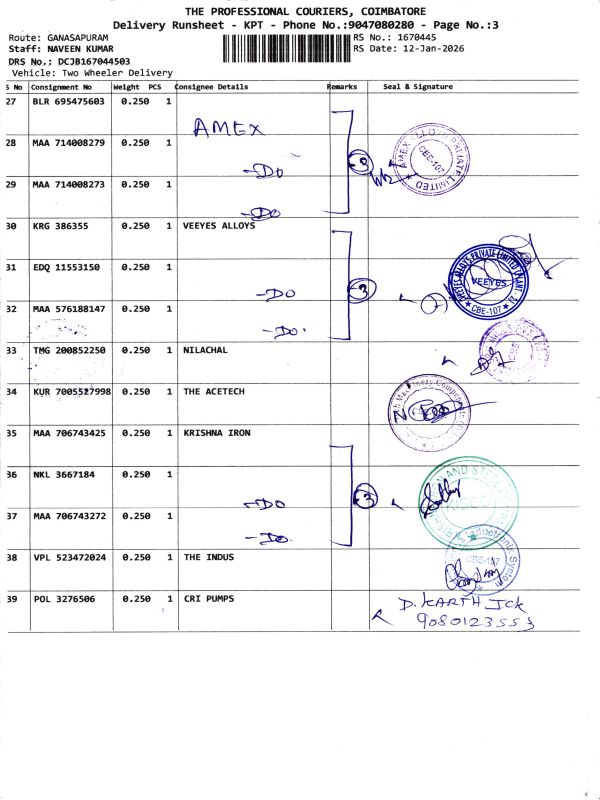 THE PROFESSIONAL COURIERS, COIMBATORE
Delivery Runsheet - KPT - Phone No.:9047080280 - Page No.:3
Route: GANASAPURAM
RS No.: 1670445
Staff: NAVEEN KUMAR
RS Date: 12-Jan-2026
DRS No,; DCJB167044503
Vehicle: Two Wheeler Delivery
S No Consignment No Weight PCS Consignee Details Remarks Seal & Signature
27 BLR 695475603 0.250 1
AMEX
28 MAA 714008279 0.250 1
-Do
AMEX ALLOYS PRIVATE LIMITED
CBE-107
3
29 MAA 714008273 0.250 1
-Do
30 KRG 386355 0.250 1 VEEYES ALLOYS
31 EDQ 11553150 0.250 1
-Do
3
VEEYES ALLOYS PRIVATE LIMITED
VEEYES
CBE-107
32 MAA 576188147 0.250 1
-Do.
33 TMG 200852250 0.250 1 NILACHAL
34 KUR 7005527998 0.250 1 THE ACETECH
Machinery Components
35 MAA 706743425 0.250 1 KRISHNA IRON
36 NKL 3667184 0.250 1
-Do
3
AND STEEL
37 MAA 706743272 0.250 1
-Do.
38 VPL 523472024 0.250 1 THE INDUS
System
CBE-107
39 POL 3276506 0.250 1 CRI PUMPS
D. KARTHICK
9080123553